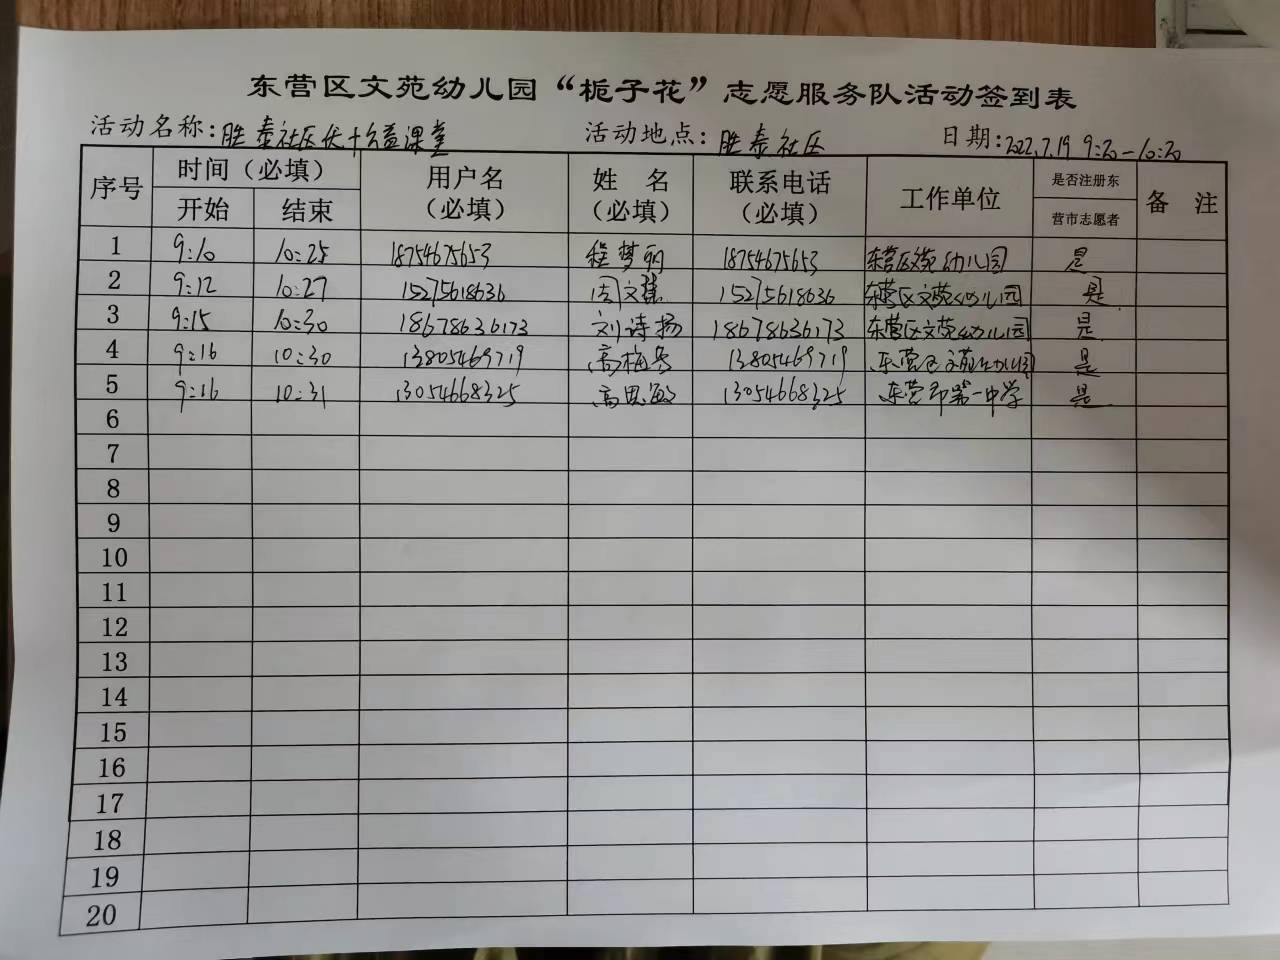 东营区文苑幼儿园“栀子花”志愿服务队活动签到表
活动名称：胜泰社区伏十公益课堂 活动地点：胜泰社区 日期：2022.7.19 9:20-10:20
序号 时间（必填） 用户名（必填） 姓 名（必填） 联系电话（必填） 工作单位 是否注册东营市志愿者 备 注
开始 结束
1 9:10 10:25 18754675653 程梦丽 18754675653 东营区文苑幼儿园 是
2 9:12 10:27 15275618636 周文 15275618636 东营区文苑幼儿园 是
3 9:15 10:30 18678636173 刘诗扬 18678636173 东营区文苑幼儿园 是
4 9:16 10:30 13805469719 高梅 13805469719 东营区文苑幼儿园 是
5 9:16 10:31 13054668325 高思敏 13054668325 东营市第一中学 是
6
7
8
9
10
11
12
13
14
15
16
17
18
19
20